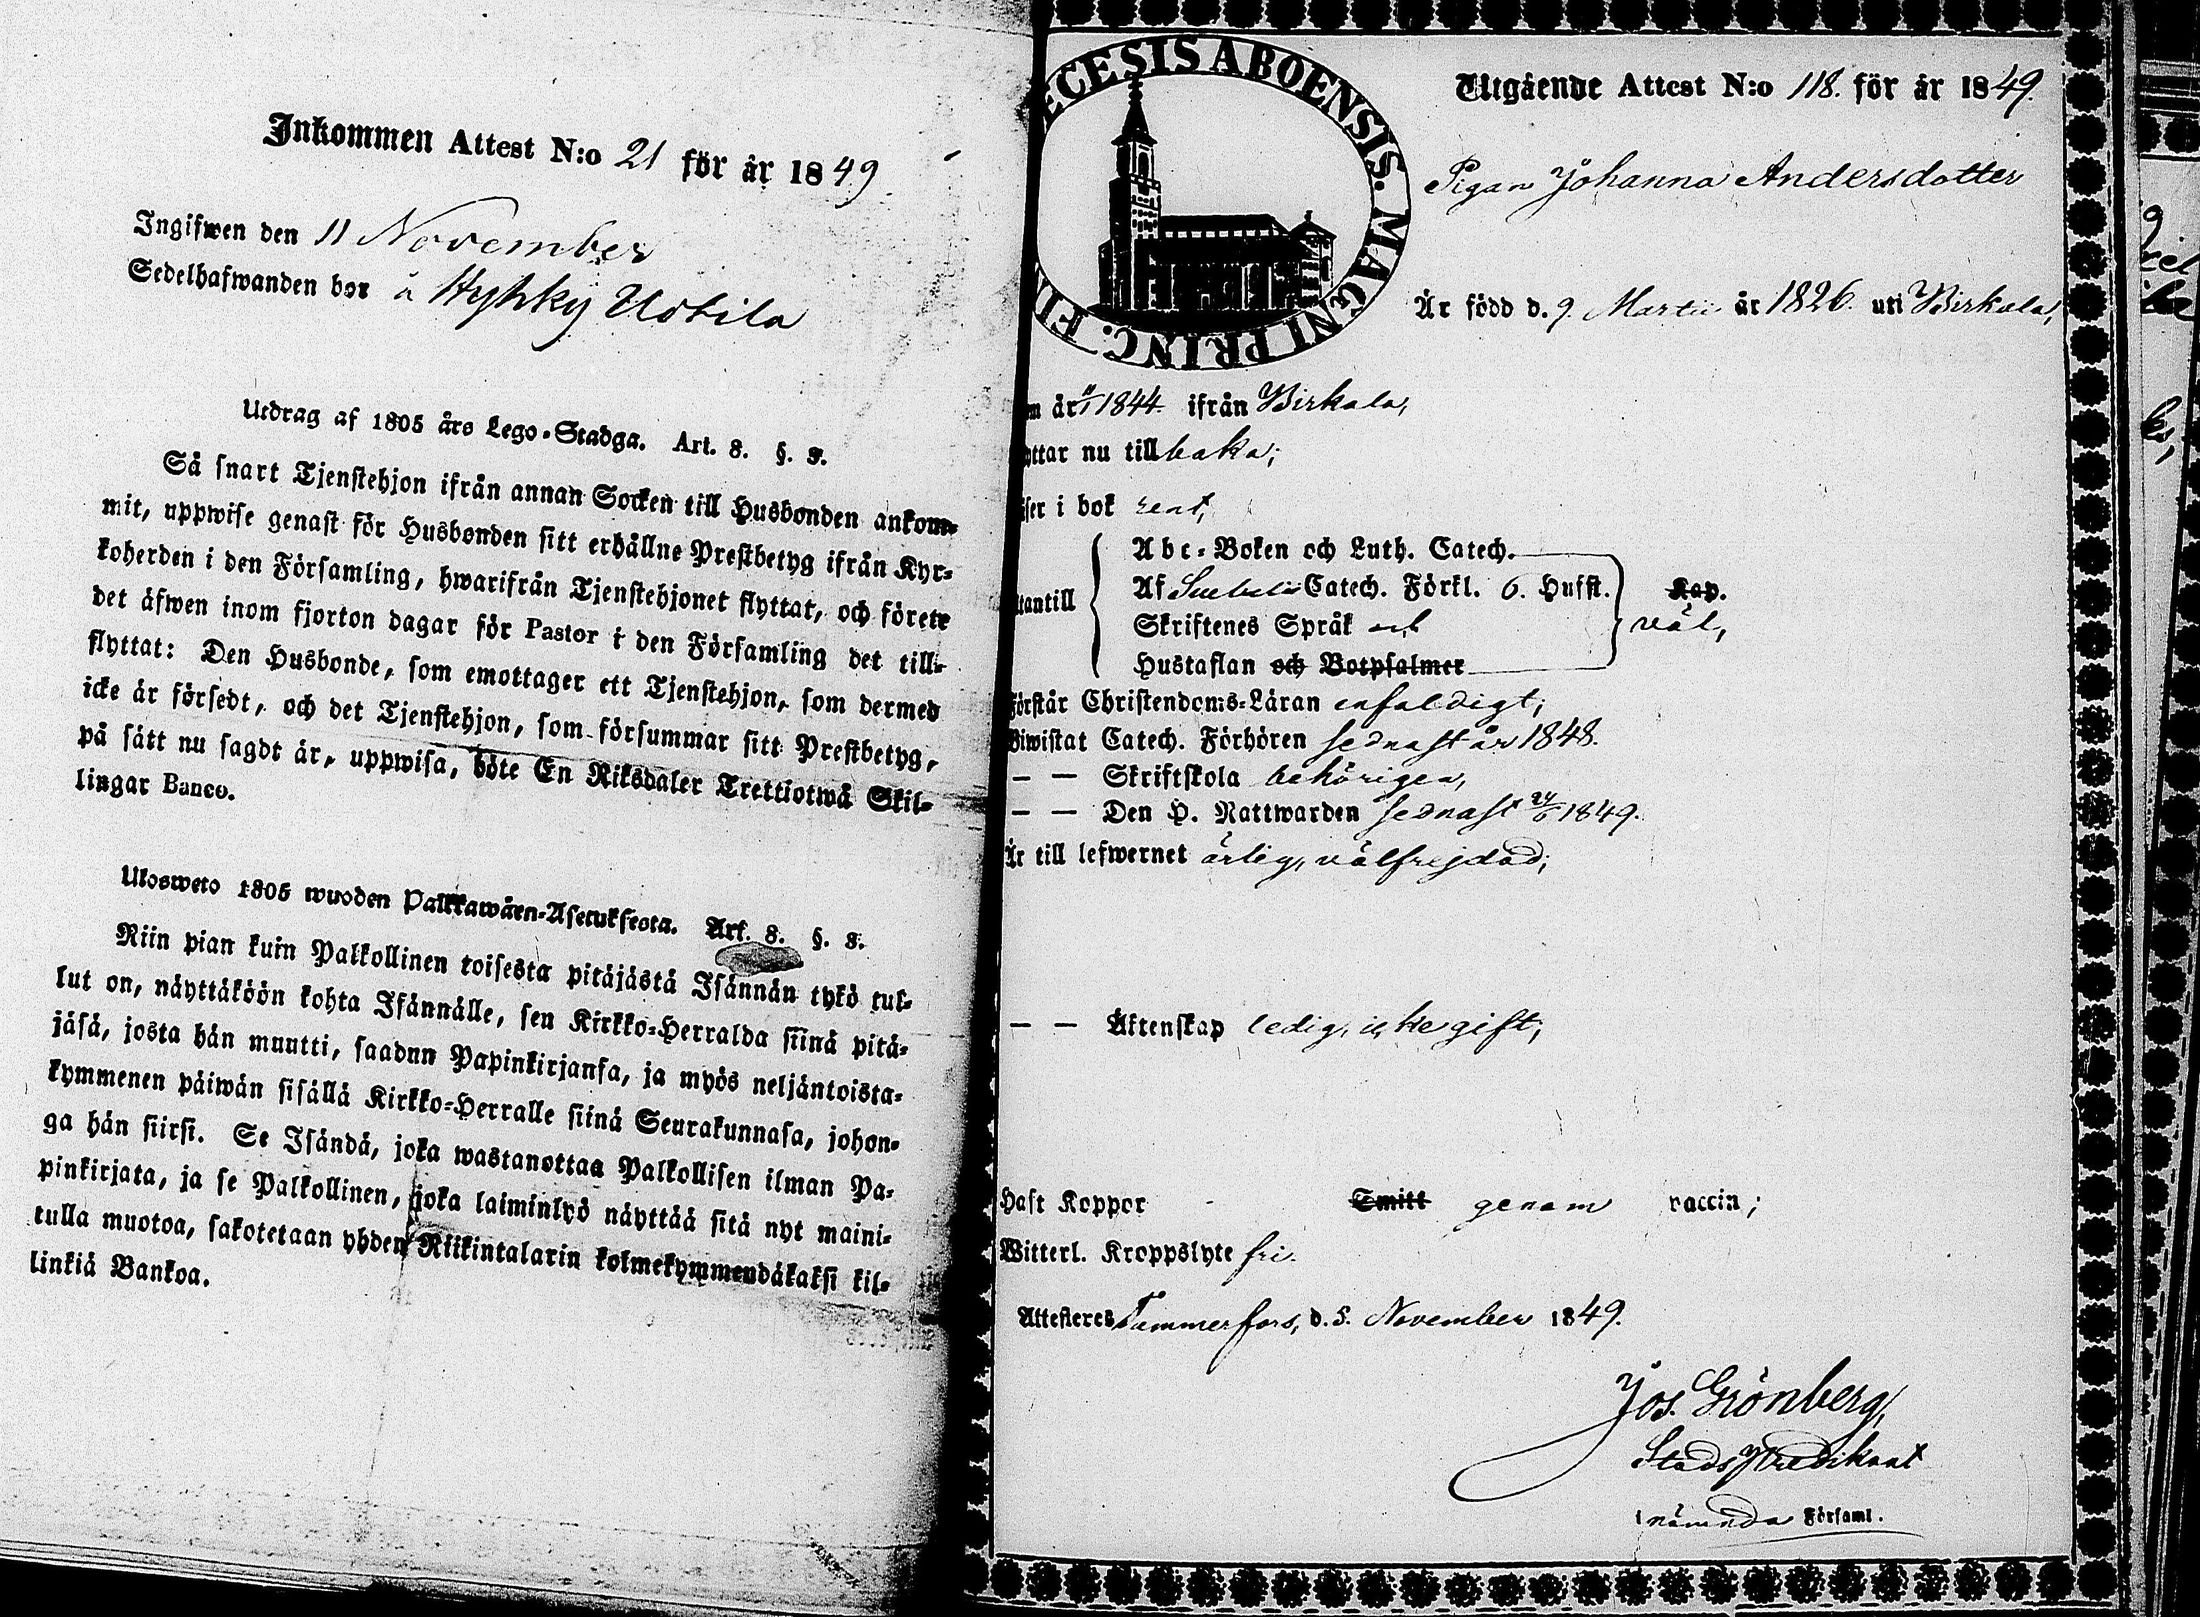 Inkommen Attest N:o 21 för år 1849.
Ingifwen den 11 November
Sedelhafwanden bor å Hyhky Uotila
Utdrag af 1805 års Lego-Stadga. Art. 8. §. 3.
Så snart Tjenstehjon ifrån annan Socken till Husbonden ankom-
mit, uppwise genast för Husbonden sitt erhållne Prestbetyg ifrån Kyr-
koherden i den Församling, hwarifrån Tjenstehjonet flyttat, och förete
det äfwen inom fjorton dagar för Pastor i den Församling det till-
flyttat: Den Husbonde, som emottager ett Tjenstehjon, som dermed
icke är försedt, och det Tjenstehjon, som försummar sitt Prestbetyg,
på sätt nu sagdt är, uppwisa, böte En Riksdaler Trettiotwå Skil-
lingar Banco.
Ulosweto 1805 wuoden Palkkawäen-Asetuksesta. Art. 8. §. 3.
Niin pian kuin Palkollinen toisesta pitäjästä Isännän tykö tul-
lut on, näyttäköön kohta Isännälle, sen Kirkko-Herralda siinä pitä-
jäsä, josta hän muutti, saadun Papinkirjansa, ja myös neljäntoista-
kymmenen päiwän sisällä Kirkko-Herralle siinä Seurakunnasa, johon-
ga hän siirsi. Se Isändä, joka wastanottaa Palkollisen ilman Pa-
pinkirjata, ja se Palkollinen, joka laiminlyö näyttää sitä nyt maini-
tulla muotoa, sakotetaan yhden Riikintalarin kolmekymmendäkaksi kil-
linkiä Bankoa.
ECESIS ABOENSIS. MAGNI PRINC. FI
Utgående Attest N:o 118. för år 1849.
Pigan Johanna Andersdotter
Är född d. 9. Martii år 1826. uti Birkala,
m år 1844. ifrån Birkala,
ttar nu tillbaka;
ser i bok rent,
tantill
Abc-Boken och Luth. Catech.
Af Svebelii Catech. Förkl. 6. Hufst. Kap.
Skriftenes Språk och väl,
Hustaflan och Botpsalmer
Förstår Christendoms-Läran enfaldigt;
Biwistat Catech. Förhören sednast år 1848.
— — Skriftskola behörigen,
— — Den H. Nattwarden sednast 24/6 1849.
Är till lefwernet ärlig, välfrejdad;
— — Äktenskap ledig, icke gift,
Haft Koppor - Smitt genom vaccin;
Witterl. Kroppslyte fri.
Attesteres Tammerfors, d. 5. November 1849.
Jos. Grönberg,
Stads Predikant
i nämnda Församl.